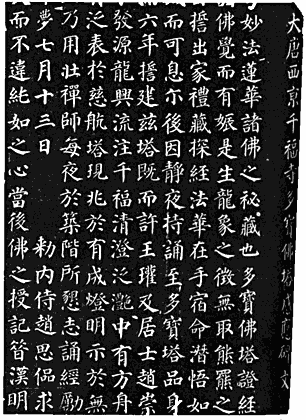 大唐西京千福寺多寶佛塔感應碑文
妙法蓮華諸佛之祕藏也多寶佛塔證經
佛覺而有娠是生龍象之徵無取熊羆之
誓出家禮藏探經法華在手宿命潛悟如
而可息尒後因靜夜持誦至多寶塔品身
六年誓建茲塔既而許王瓘及居士趙崇
發源龍興流注千福清澄泛灔中有方舟
泛表於慈航塔現兆於有成燈明示於無
乃用壯禪師每夜於築階所懇志誦經勵
夢七月十三日 勅內侍趙思侃求
而不違純如之心當後佛之授記昔漢明